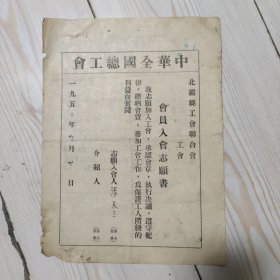 中華全國總工會
北鎮縣工會聯合會
工會
會員入會志願書
我志願加入工會，承認會章，執行決議，遵守紀
律，繳納會費，參加工會工作，為保護工人階級的
利益而奮鬥
志願入會人
介紹人
一九五二年 月 日